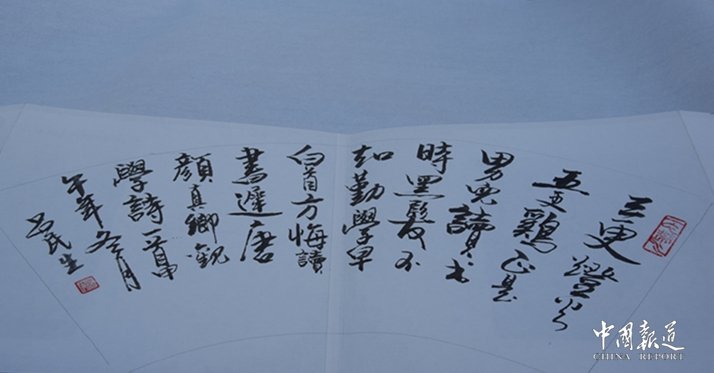 三更燈火
五更鷄正是
男兒讀書
時黑髮不
知勤學早
白首方悔讀
書遲唐
顏真卿勸
學詩一首甲
午年冬月
呂民生
中国報道
CHINA REPORT